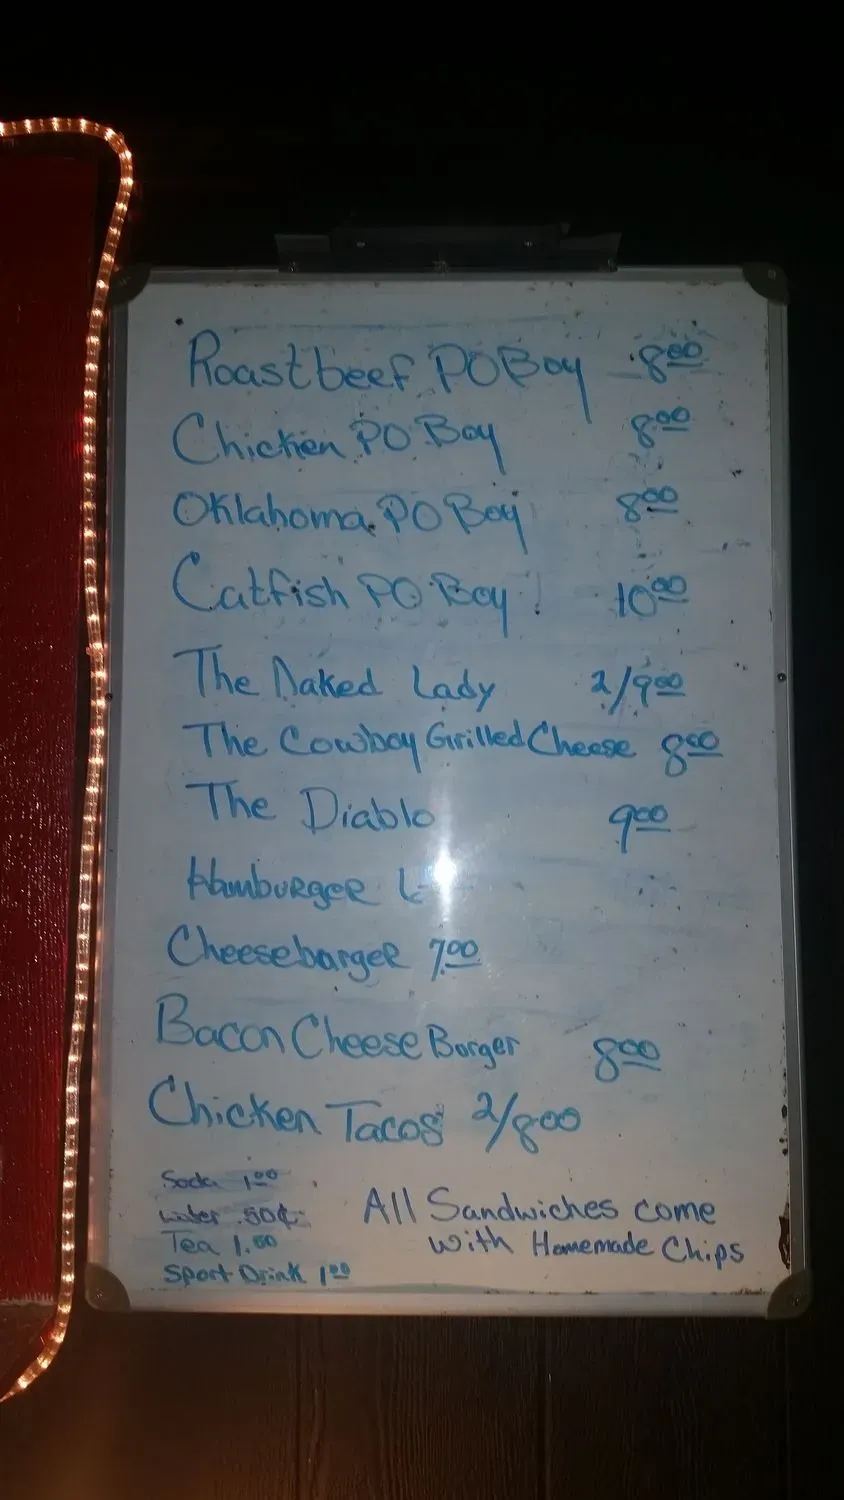 Roastbeef PO Boy 8.00
Chicken PO Boy 8.00
Oklahoma PO Boy 8.00
Catfish PO Boy 10.00
The Naked Lady 2/9.00
The Cowboy Grilled Cheese 8.00
The Diablo 9.00
Hamburger
Cheeseburger 7.00
Bacon Cheese Burger 8.00
Chicken Tacos 2/8.00
Soda 1.00
Water .50¢
Tea 1.00
Sport Drink 1.00
All Sandwiches come
with Homemade Chips